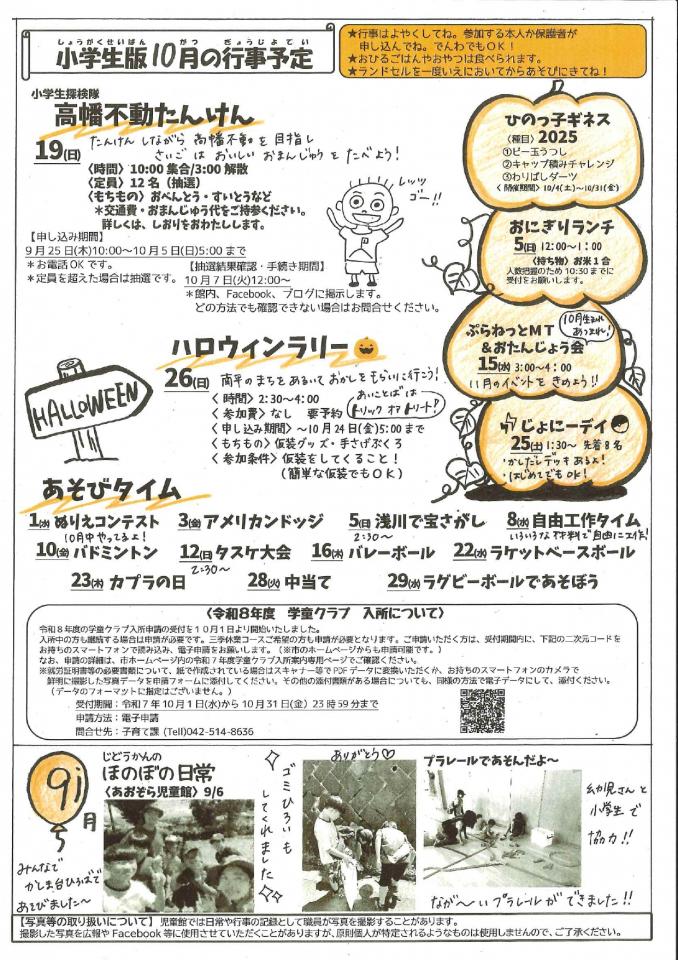 しょうがくせいばん がつ ぎょうじよてい
小学生版10月の行事予定
★行事はよやくしてね。参加する本人か保護者が
申し込んでね。でんわでもOK!
★おひるごはんやおやつは食べられます。
★ランドセルを一度いえにおいてからあそびにきてね!
小学生探検隊
高幡不動たんけん
19(日) たんけんしながら高幡不動を目指し
さいごはおいしいおまんじゅうをたべよう!
〈時間〉10:00集合/3:00解散
〈定員〉12名(抽選)
〈もちもの〉おべんとう・すいとうなど
＊交通費・おまんじゅう代をご持参ください。
詳しくは、しおりをおわたしします。
レッツゴー!!
【申し込み期間】
9月25日(木)10:00〜10月5日(日)5:00まで
＊お電話OKです。
＊定員を超えた場合は抽選です。
【抽選結果確認・手続き期間】
10月7日(火)12:00〜
＊館内、Facebook、ブログに掲示します。
どの方法でも確認できない場合はお問合せください。
ひのっ子ギネス
〈種目〉2025
①ビー玉うつし
②キャップ積みチャレンジ
③わりばしダーツ
〈開催期間〉10/4(土)〜10/31(金)
おにぎりランチ
5(日)12:00〜1:00
〈持ち物〉お米1合
人数把握のため10:30までに
受付をお願いします。
ぷらねっとMT
&おたんじょう会
10月生まれあつまれ!
15(水)3:00〜4:00
11月のイベントをきめよう!!
じょにーデイ
25(土)1:30〜 先着8名
・かしだしデッキあるよ!
・はじめてでもOK!
HALLOWEEN
ハロウィンラリー
26(日) 南平のまちをあるいておかしをもらいに行こう!
〈時間〉2:30〜4:00
〈参加費〉なし 要予約
〈申し込み期間〉〜10月24日(金)5:00まで
〈もちもの〉仮装グッズ・手さげぶくろ
〈参加条件〉仮装をしてくること!
(簡単な仮装でもOK)
あいことばは
トリックオアトリート!
あそびタイム
1(水)ぬりえコンテスト
10月中やってるよ!
3(金)アメリカンドッジ
5(日)浅川で宝さがし
2:30〜
8(水)自由工作タイム
いろいろな材料で自由に工作!
10(金)バドミントン
12(日)タスケ大会
2:30〜
16(木)バレーボール
22(水)ラケットベースボール
23(木)カプラの日
28(火)中当て
29(水)ラグビーボールであそぼう
〈令和8年度 学童クラブ 入所について〉
令和8年度の学童クラブ入所申請の受付を10月1日より開始いたしました。
入所中の方も継続する場合は申請が必要です。三季休業コースご希望の方も申請が必要となります。ご申請いただく方は、受付期間内に、下記の二次元コードを
お持ちのスマートフォンで読み込み、電子申請をお願いします。(※市のホームページからも申請可能です。)
なお、申請の詳細は、市ホームページ内の令和7年度学童クラブ入所案内専用ページでご確認ください。
※就労証明書等の必要書類について、紙で作成されている場合はスキャナー等でPDFデータに変換いただくか、お持ちのスマートフォンのカメラで
鮮明に撮影した写真データを申請フォームに添付してください。その他の添付書類がある場合についても、同様の方法で電子データにして、添付ください。
(データのフォーマットに指定はございません。)
受付期間:令和7年10月1日(水)から10月31日(金)23時59分まで
申請方法:電子申請
問合せ先:子育て課 (Tell)042-514-8636
9月
じどうかんの
ほのぼの日常
〈あおぞら児童館〉9/6
みんなで
かしま台ひろばで
あそびました〜
ゴミひろいも
してくれました
ありがとう♡
プラレールであそんだよ〜
幼児さんと
小学生で
協力!!
なが〜いプラレールができました!!
【写真等の取り扱いについて】児童館では日常や行事の記録として職員が写真を撮影することがあります。
撮影した写真を広報やFacebook等に使用させていただくことがありますが、原則個人が特定されるようなものは使用しませんので、ご了承ください。